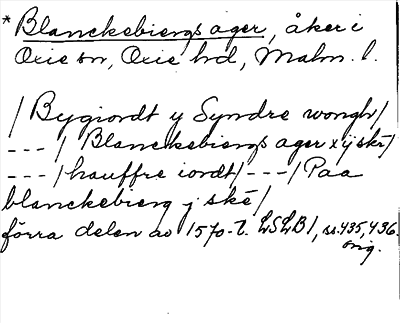 * Blanckebiergs ager, åker i
Oxie sn, Oxie hd, Malm. l.
/ Bygiordt y Syndre wongh/
---/ Blanckebiergs ager xij skr/
---/hauffre iordt/---/ Paa
blanckebierg j skē/
förra delen av 1570-t. LSLB1, ss.435, 436.
orig.